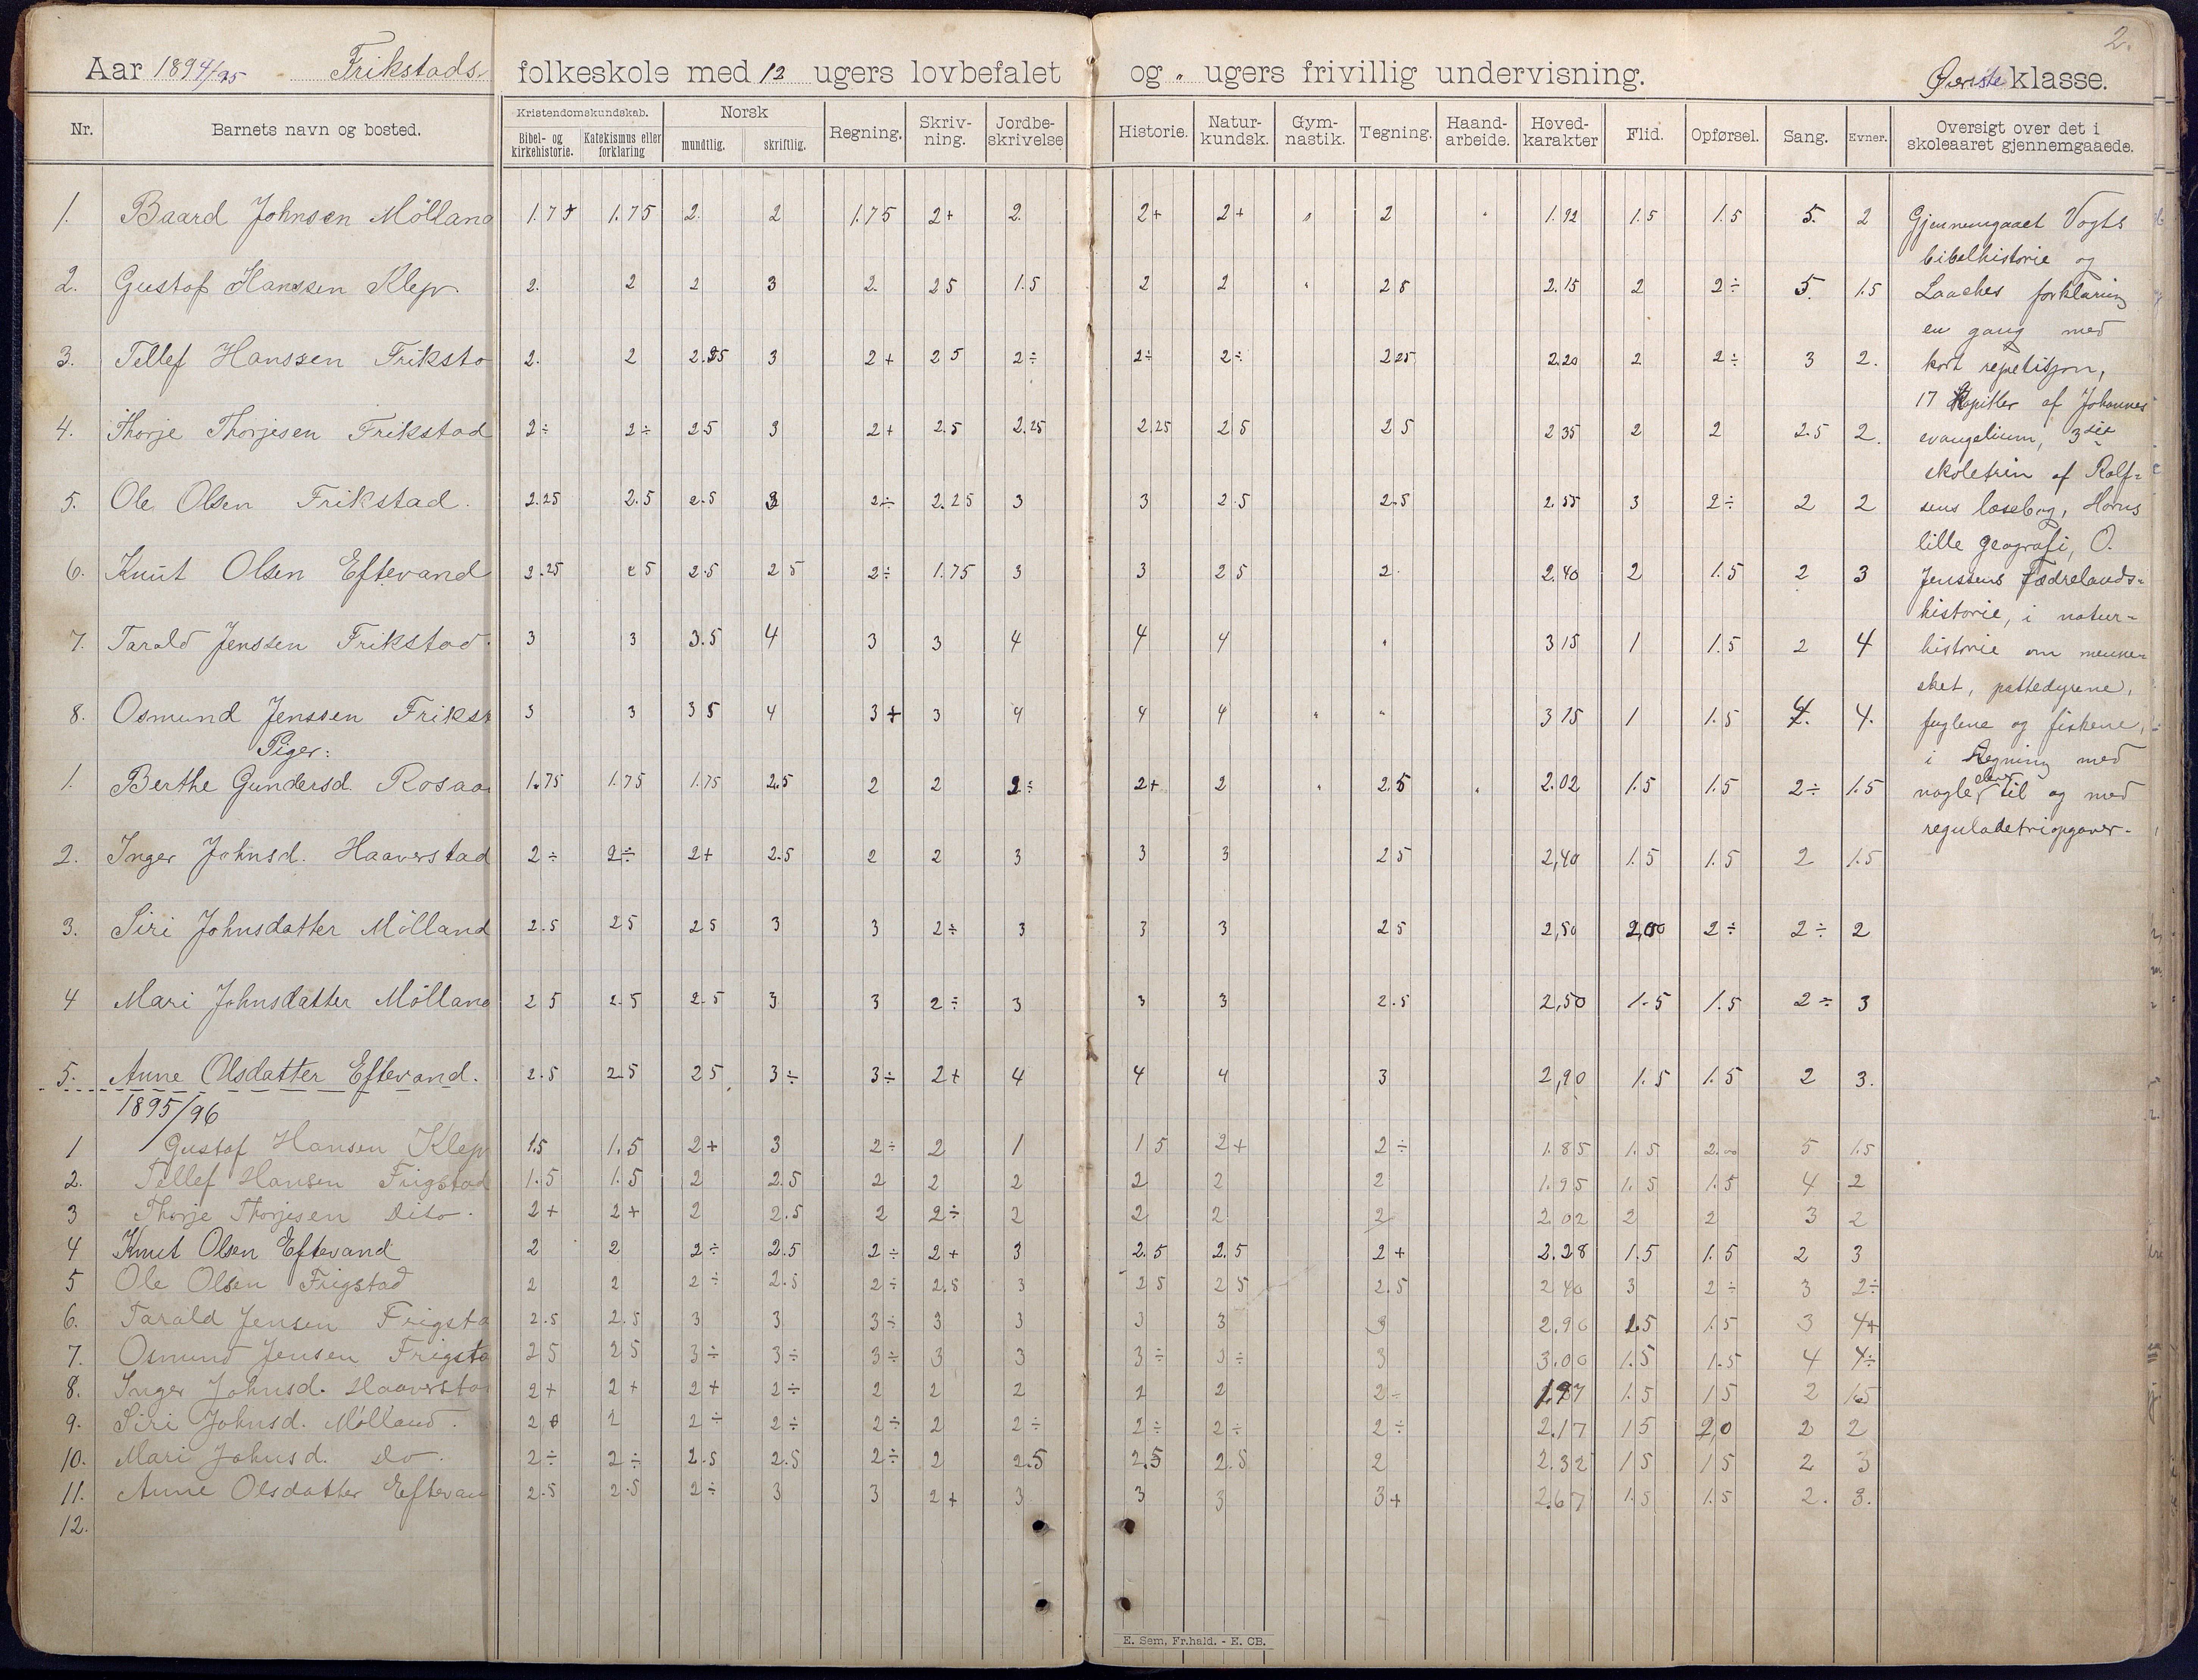 2.
Aar 1894/95 Frikstads folkeskole med 12 ugers lovbefalet og „ ugers frivillig undervisning. Øverste klasse.
Nr. Barnets navn og bosted. Kristendomskundskab. Bibel- og kirkehistorie. Katekismus eller forklaring Norsk mundtlig. skriftlig. Regning. Skriv-ning. Jordbe-skrivelse Historie. Natur-kundsk. Gym-nastik. Tegning. Haand-arbeide. Hoved-karakter Flid. Opførsel. Sang. Evner. Oversigt over det i skoleaaret gjennemgaaede.
1. Baard Johnsen Mölland 1.75 1.75 2. 2 1.75 2+ 2. 2+ 2+ „ 2 „ 1.92 1.5 1.5 5. 2
2. Gustof Hanssen Klep. 2. 2 2 3 2. 25 1.5 2 2 „ 28 2.15 2 2÷ 5. 1.5
3. Tellef Hanssen Friksto 2. 2 2.25 3 2+ 25 2÷ 2÷ 2÷ 225 2.20 2 2÷ 3 2.
4. Thorje Thorjesen Frikstad 2÷ 2÷ 25 3 2+ 2.5 2.25 2.25 25 25 235 2 2 2.5 2.
5. Ole Olsen Frikstad. 2.25 2.5 2.5 3 2÷ 2.25 3 3 2.5 2.5 2.55 3 2÷ 2 2
6. Knut Olsen Eftevand 2.25 25 2.5 25 2÷ 1.75 3 3 25 2. 2.40 2 1.5 2 3
7. Tarald Jenssen Frikstad. 3 3 3.5 4 3 3 4 4 4 „ 315 1 1.5 2 4
8. Osmund Jenssen Frikst 3 3 35 4 3+ 3 4 4 4 „ „ 315 1 1.5 4. 4.
Piger:
1. Berthe Gundersd. Rosaa 1.75 1.75 1.75 2.5 2 2 2÷ 2+ 2 „ 2.5 „ 2.02 1.5 1.5 2÷ 1.5
2. Inger Johnsd. Haaverstad 2÷ 2÷ 2+ 2.5 2 2 3 3 3 25 2,40 1.5 1.5 2 1.5
3. Siri Johnsdatter Mölland 2.5 25 25 3 3 2÷ 3 3 3 25 2,50 2,00 2÷ 2÷ 2
4 Mari Johnsdatter Mölland 25 2.5 2.5 3 3 2÷ 3 3 3 2.5 2,50 1.5 1.5 2÷ 3
5. Anne Olsdatter Eftevand. 2.5 2.5 25 3÷ 3÷ 2+ 4 4 4 3 2,90 1.5 1.5 2 3.
1895/96
1 Gustof Hansen Klep 1.5 1.5 2+ 3 2÷ 2 1 15 2+ 2÷ 1.85 1.5 2.00 5 1.5
2. Tellef Hansen Frigstad 1.5 1.5 2 2.5 2 2 2 2 2 2 1.95 1.5 1.5 4 2
3 Thorje Thorjesen Dito. 2+ 2+ 2 2.5 2 2÷ 2 2 2 2 2.02 2 2 3 2
4 Knut Olsen Eftevand 2 2 2÷ 2.5 2÷ 2+ 3 2.5 2.5 2+ 2.28 1.5 1.5 2 3
5 Ole Olsen Frigstad 2 2 2÷ 2.5 2÷ 2.5 3 25 25 2.5 240 3 2÷ 3 2÷
6. Tarald Jensen Frigsta 2.5 2.5 3 3 3÷ 3 3 3 3 3 2.90 1.5 1.5 3 4+
7. Osmund Jensen Frigsta 25 25 3÷ 3÷ 3÷ 3 3 3÷ 3÷ 3 3.00 1.5 1.5 4 4÷
8. Inger Johnsd. Haaversta 2+ 2+ 2+ 2÷ 2 2 2 2 2 2÷ 1.97 1.5 15 2 1.5
9. Siri Johnsd. Mölland. 2+ 2 2÷ 2÷ 2÷ 2 2÷ 2÷ 2÷ 2÷ 2.17 15 2,0 2 2
10. Mari Johnsd. Do. 2÷ 2÷ 2.5 2.5 2÷ 2 2.5 2.5 2.5 2 2.32 15 15 2 3
11. Anne Olsdatter Eftevan 2.5 2.5 2÷ 3 3 2+ 3 3 3 3+ 2.67 1.5 1.5 2. 3.
12.
Gjennemgaaet Vogts
bibelhistorie og
Laaches forklaring
en gang med
kort repetisjon,
17 Kapitler af Johannes
evangelium, 3die
skoletrin af Rolf=
sens læsebog, Horns
lille geografi, O.
Jenssens Fædrelands=
historie, i natur=
historie om menne=
sket, pattedyrene,
fuglene og fiskene,
i Regning med
nogle elever til og med
reguladetriopgaver.
E. Sem, Fr.hald. - E. CB.